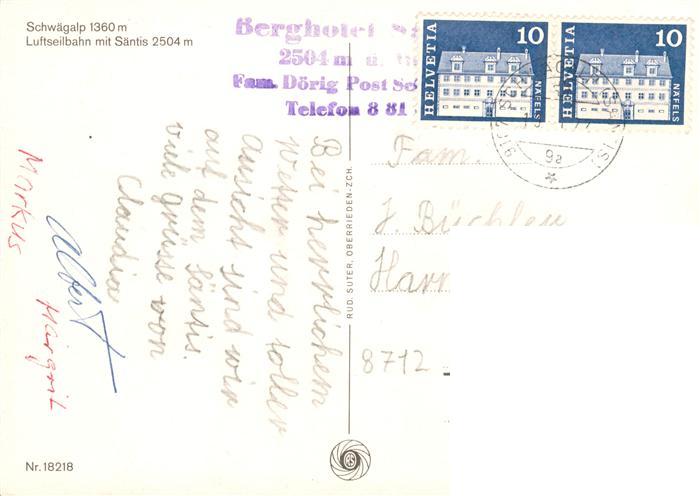 Schwägalp 1360 m
Luftseilbahn mit Säntis 2504 m
Berghotel
2504 m ü.
Fam. Dörig Post
Telefon 8 81
HELVETIA 10 NÄFELS
HELVETIA 10 NÄFELS
9a
Bei herrlichem
Wetter und toller
Aussicht sind wir
auf dem Säntis.
Viele Grüsse von
Claudia
Albert
Margrit
Markus
RUD. SUTER, OBERRIEDEN-ZCH.
Fam.
J. Büchler
8712
Nr. 18218